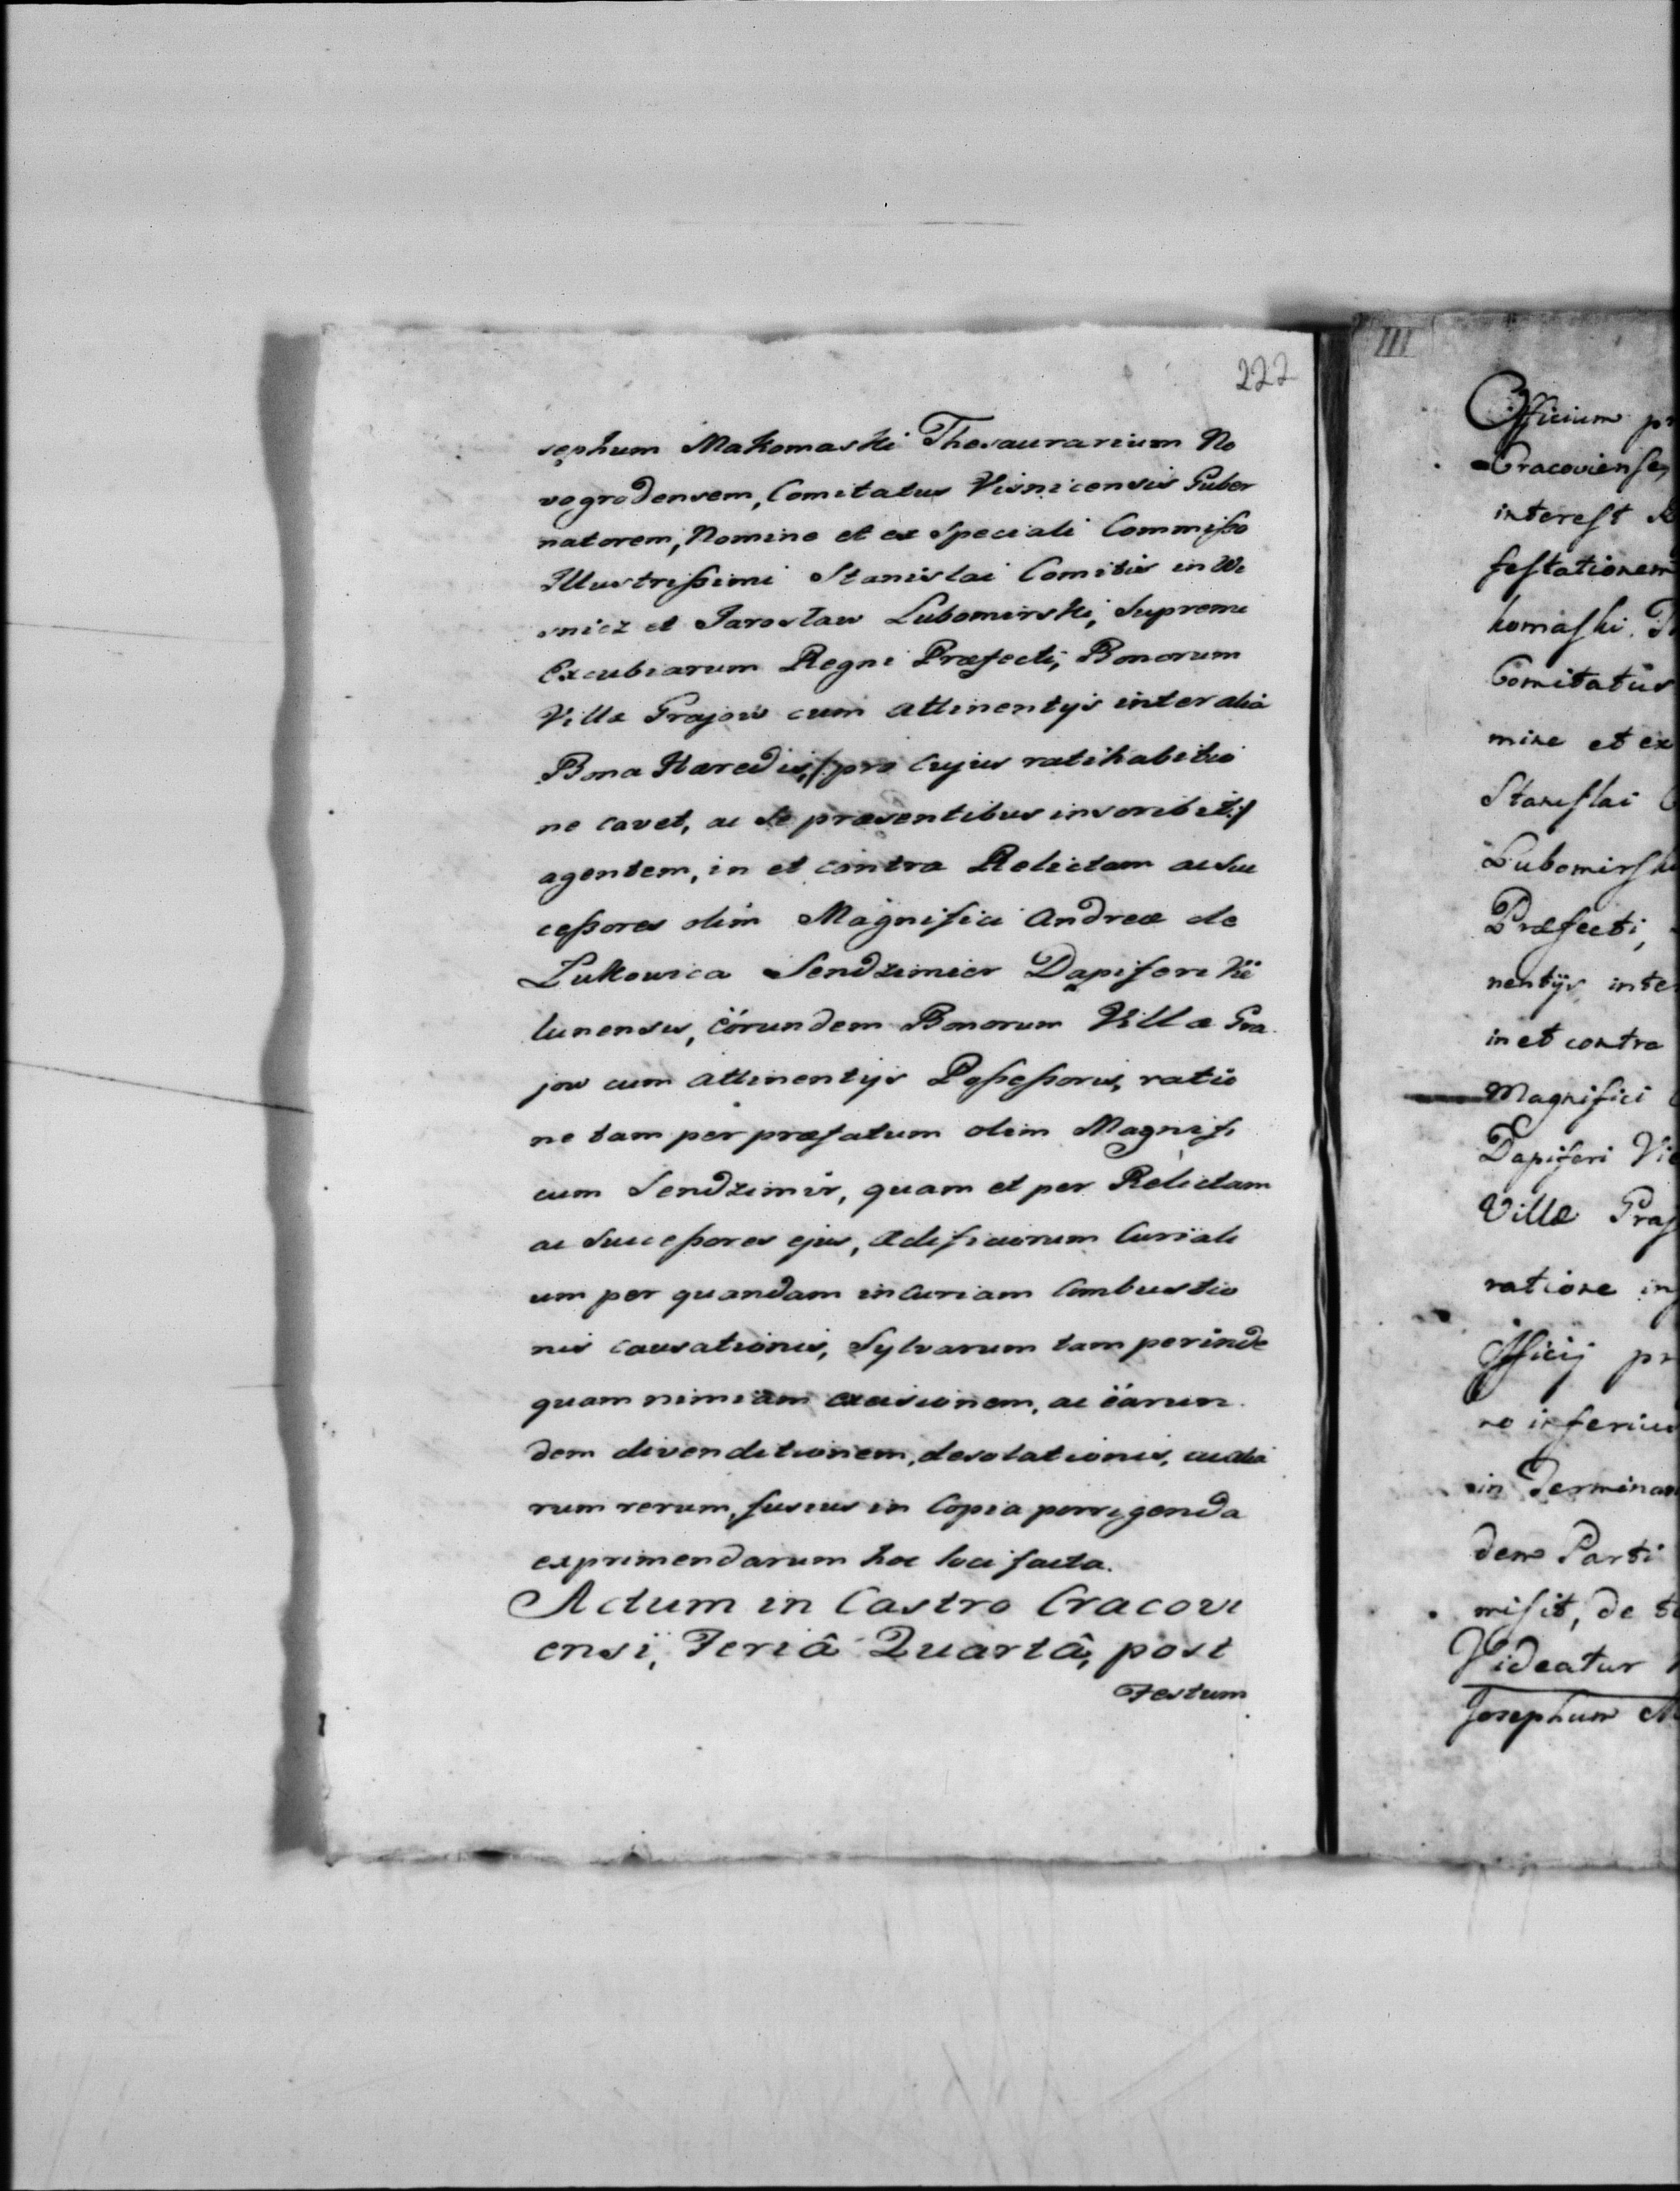 222
sephum Makomaski Thesaurarium No
vogrodensem, Comitatus Visnicensis Guber
natorem, Nomine et ex Speciali Commisso
Illustrissimi Stanislai Comitis in Wi
snicz et Jaroslaw Lubomirski, Supremi
Excubiarum Regni Præfecti, Bonorum
Villæ Grajow cum attinentijs inter alia
Bona Hæredis, /: pro cujus ratihabitio
ne cavet, ac se præsentibus inscribit :/
agentem, in et contra Relictam ac Suc
cessores olim Magnifici Andreæ de
Lukowica Sendzimier Dapiferi Vie
lunensis, eorundem Bonorum Villæ Gra
jow cum attinentijs Possessoris, ratio
ne tam per præfatum olim Magnifi
cum Sendzimir, quam et per Relictam
ac Successores ejus, Ædificiorum Curiali
um per quandam incuriam Combustio
nis causationis, Sylvarum tam perinde
quam nimiam excisionem, ac earun
dem divenditionem, desolationis, ac alia
rum rerum, fusius in Copia porrigenda
exprimendarum hoc loci facta.
Actum in Castro Cracovi
ensi, Feriâ Quartâ, post
Festum
III
Officium
Cracoviense,
interest
festationem
komaski
Comitatus
mine et ex
Stanislai
Lubomirski
Præfecti,
nentijs inter
in et contra
Magnifici
Dapiferi
Villæ
ratione
Officij
no inferius
in Terminan
dem Parti
misit, de
Videatur
Josephum